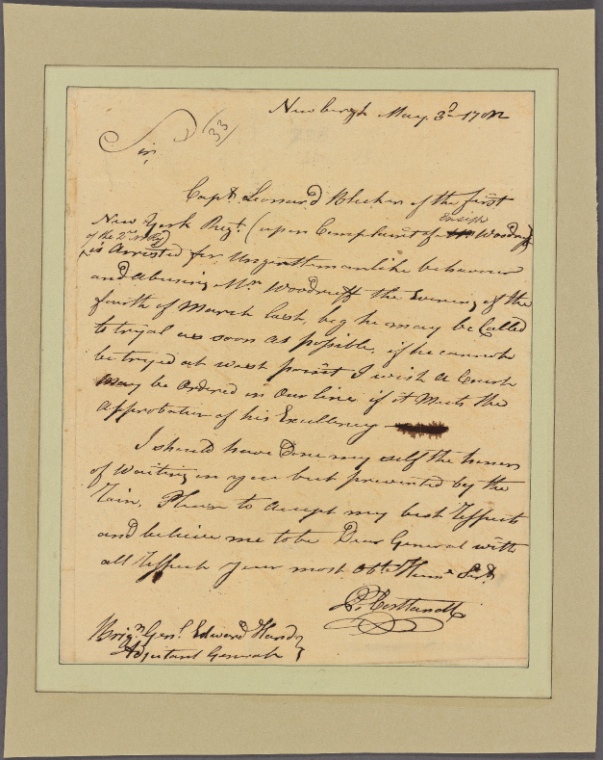 Newburgh May 3d 1782
(33)
Sir,
Capt. Leonard Bleeker of the first
New York Regt. (upon Complaint of Ensign Woodruff
of the 2d NY Reg)
is Arrested for Ungentlemanlike behaviour
and abusing Mr. Woodruff the Evening of the
fourth of March last, beg he may be Called
to tryal as soon as possible, if he cannot
be tryed at west point I wish a Court
may be ordered in our line if it Meets the
approbation of his Excellency
I should have Done my self the honor
of Waiting on you but prevented by the
Rain. Please to accept my best Respects
and believe me to be Dear General with
all Respect your most Obt. Hume. Servt.
P. Cortlandt
Brign. Genl. Edward Hand
Adjutant General